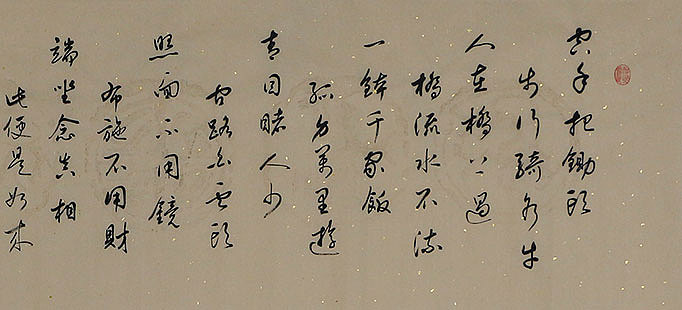 空手把鋤頭
步行騎水牛
人在橋上過
橋流水不流
一鉢千家飯
孤身萬里遊
青目睹人少
問路白雲頭
照面不用鏡
布施不用財
端坐念真相
此便是如來